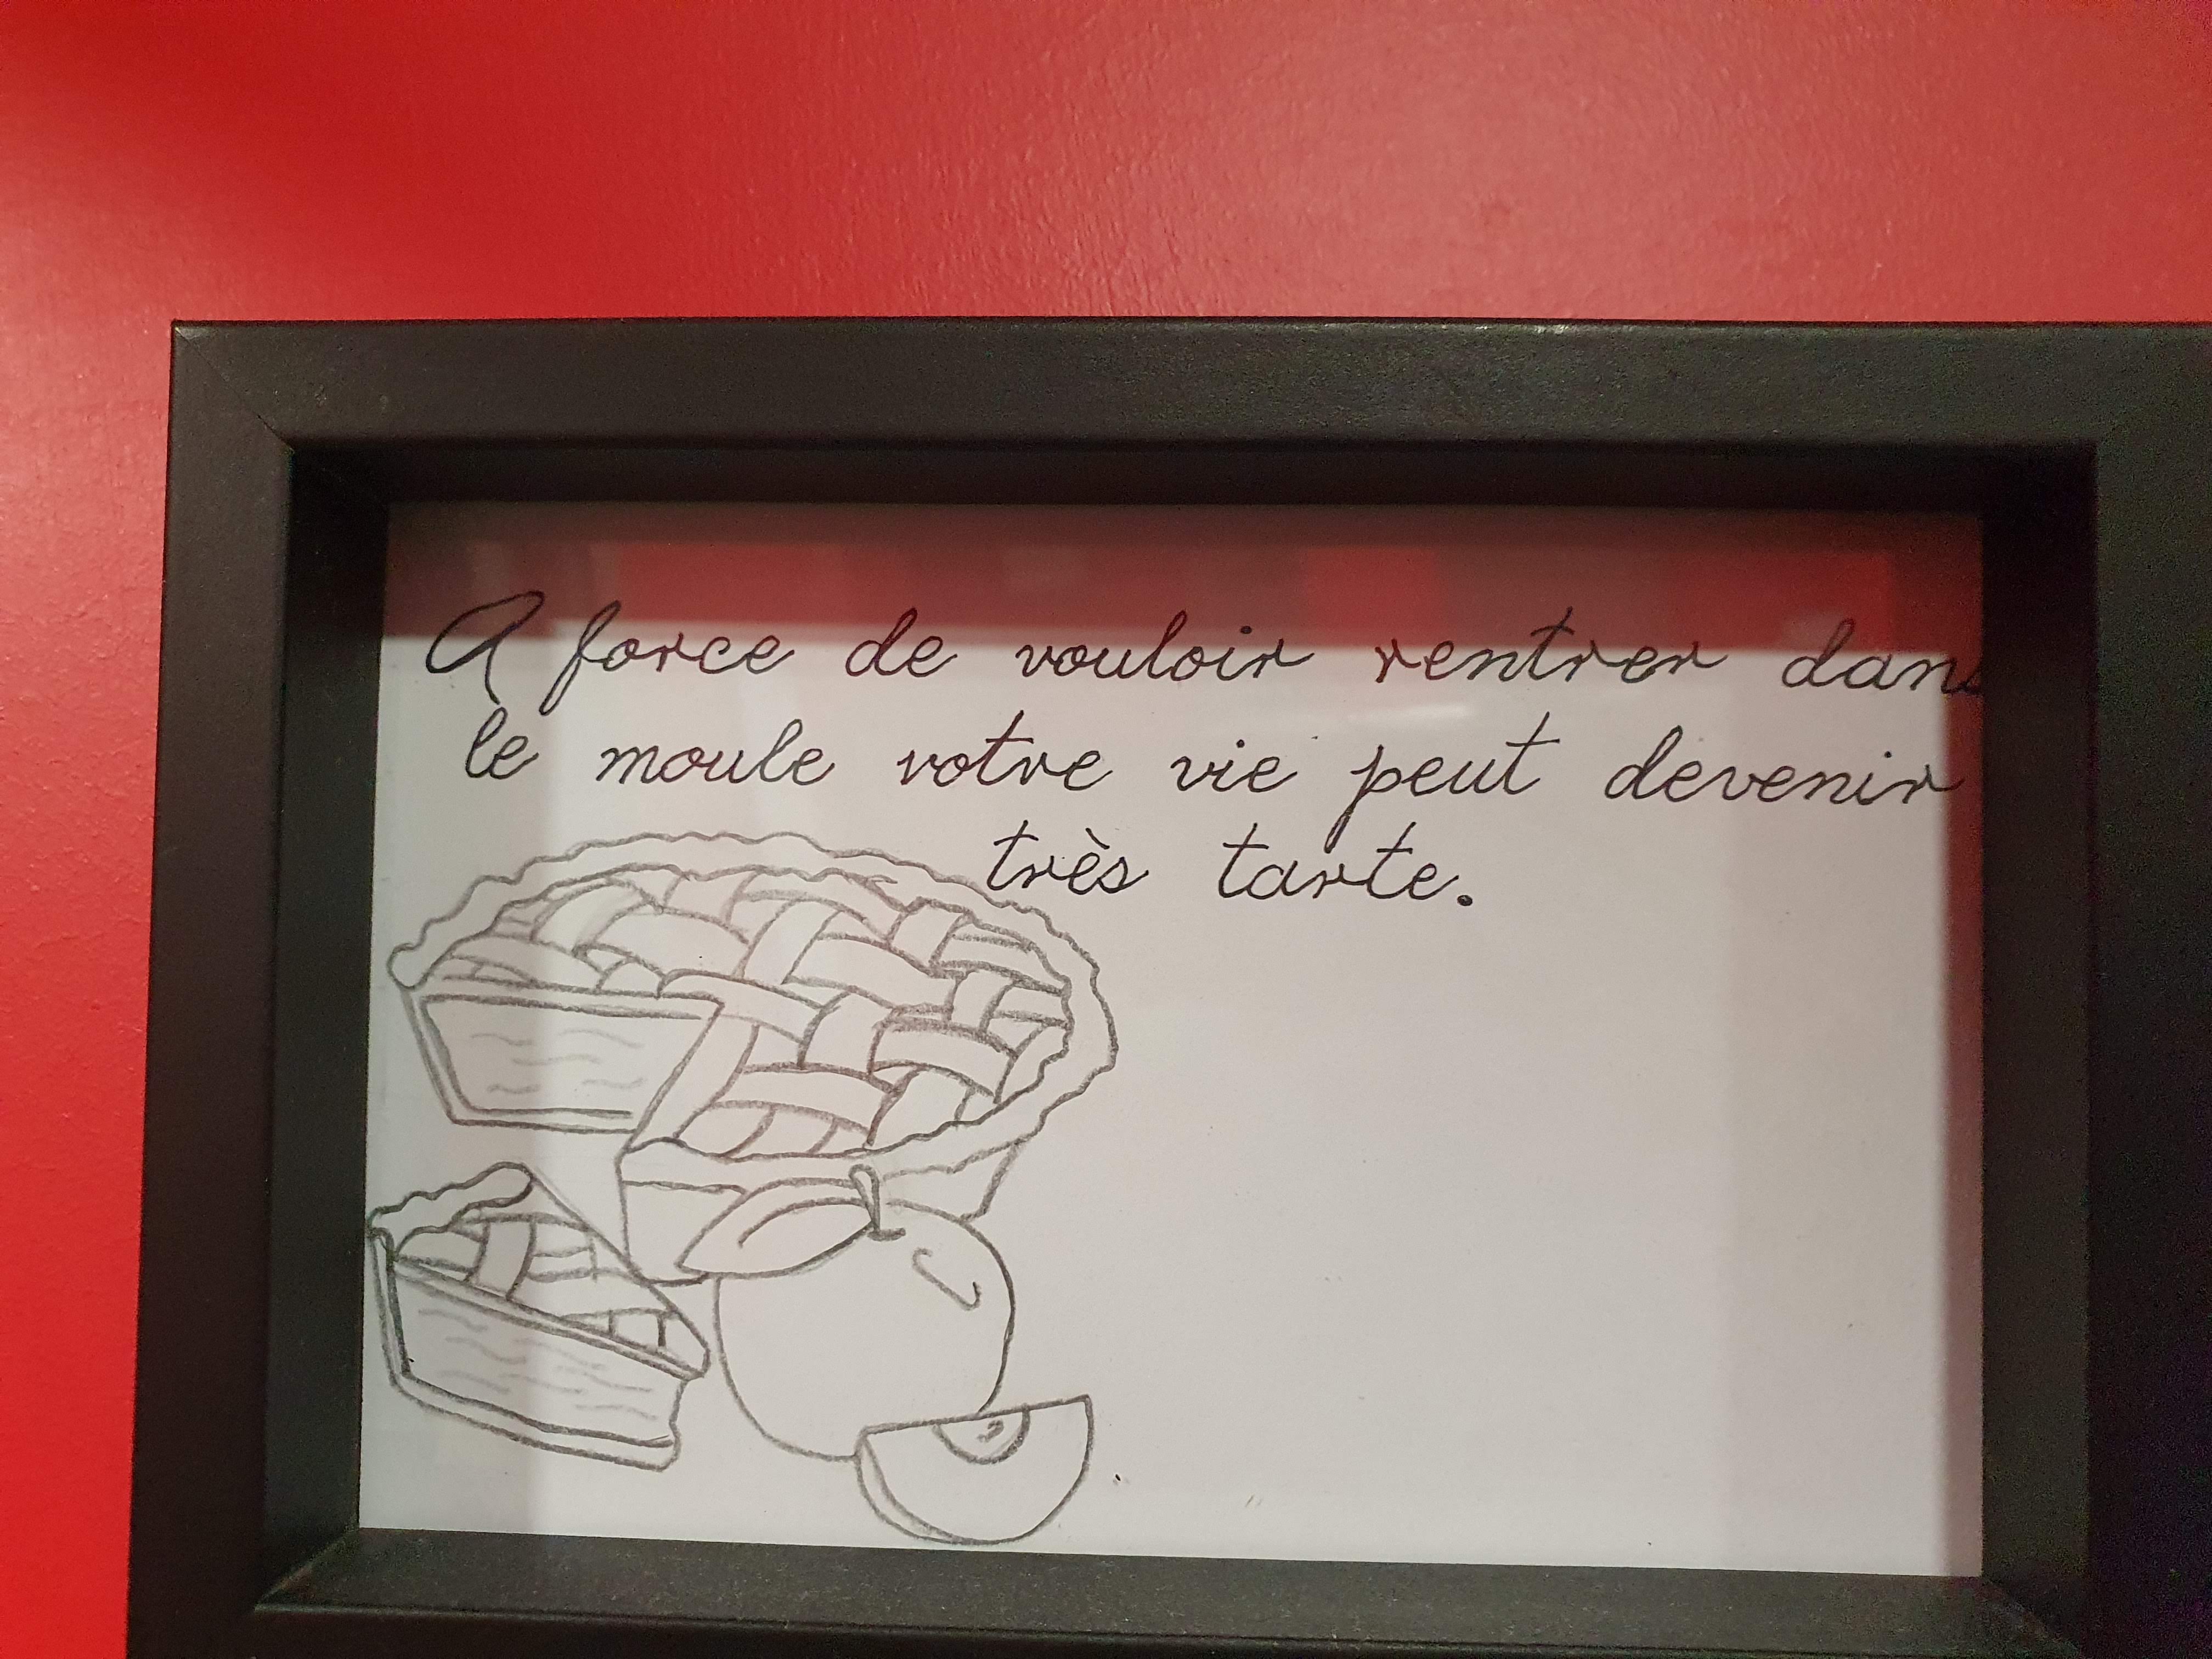 A force de vouloir rentrer dans
le moule votre vie peut devenir
très tarte.